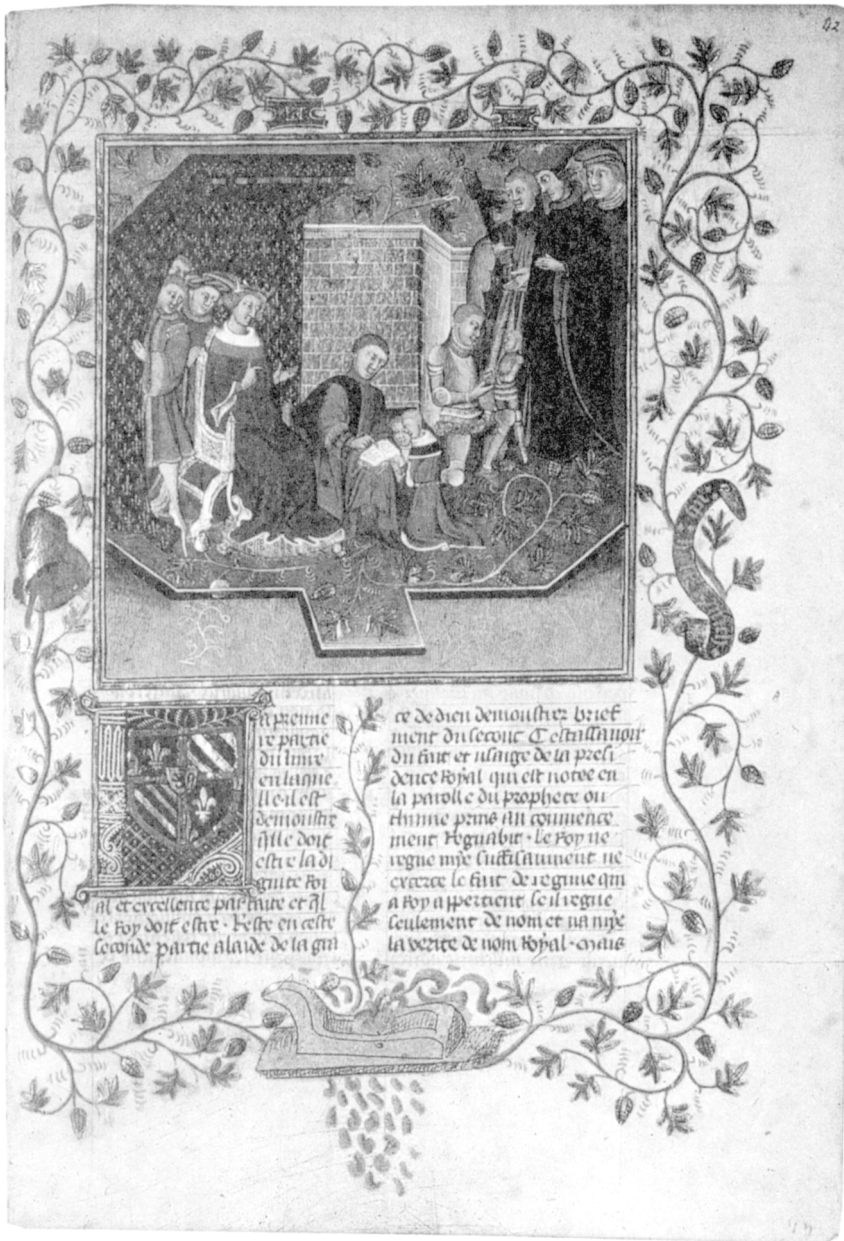 92
a premie
re partie
du livre
en laque
lle il est
demoustre
q̃lle doit
estre la di
gnite Roi
al et excellence parfaite et q̃l
le Roy doit estre · Reste en ceste
seconde partie a laide de la gra
ce de dieu demoustrer brief
ment du second Cestassavoir
du fait et usaige de la presi
dence Royal qui est notee en
la parolle du prophete ou
thiume prins au commence
ment Regnabit · Le Roy ne
regne mye suffisaument ne
exerce le fait de regime qui
a Roy appertient se il regne
seulement de nom et na mye
la verite de nom Royal · mais